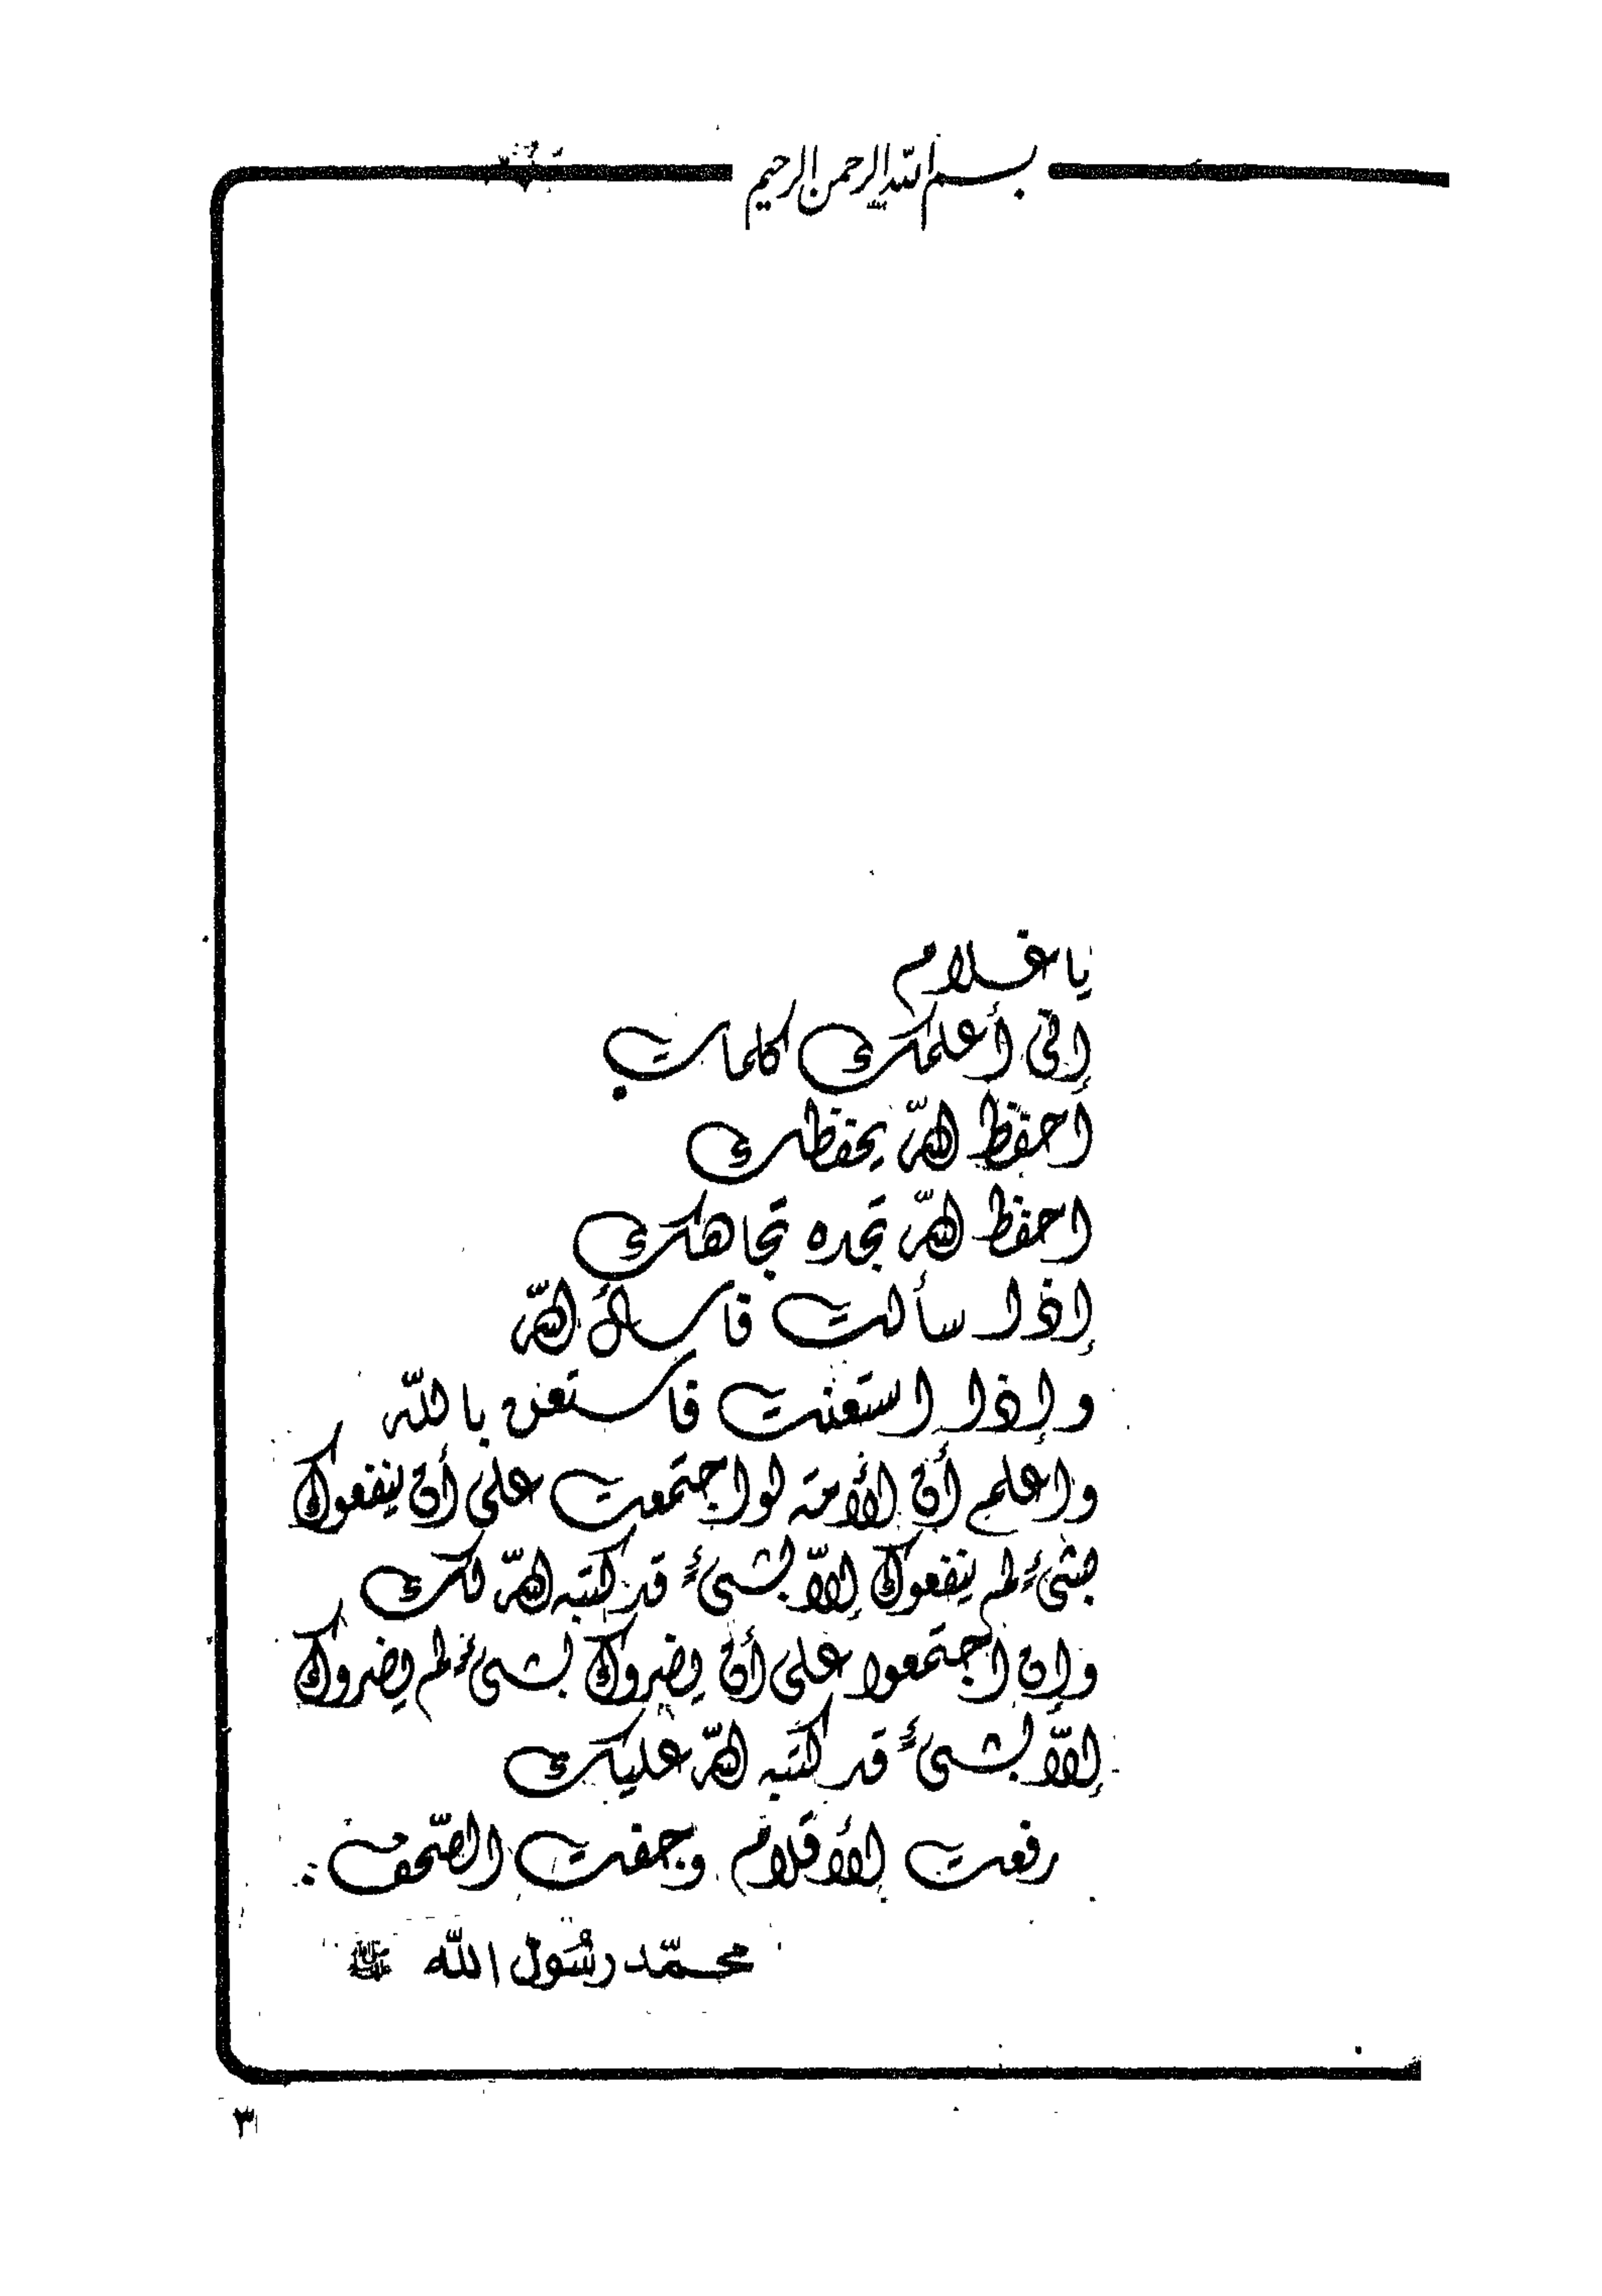 بسم الله الرحمن الرحيم
يا غلام
إني أعلمك كلمات
إحفظ الله يحفظك
احفظ الله تجده تجاهك
إذا سألت فاسأل الله
وإذا استعنت فاستعن بالله
واعلم أن الأمة لو اجتمعت على أن ينفعوك
بشئ لم ينفعوك إلا بشئ قد كتبه الله لك
وإن اجتمعوا على أن يضروك بشئ لم يضروك
إلا بشئ قد كتبه الله عليك
رفعت الأقلام وجفت الصّحف .
محمّد رسُول الله ﷺ
٣